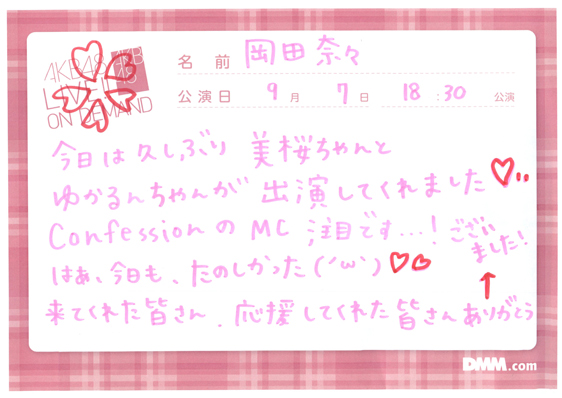 AKB48
LIVE!!
ON DEMAND
名前 岡田奈々
公演日 9月 7日 18:30 公演
今日は久しぶり 美桜ちゃんと
ゆかるんちゃんが 出演してくれました♡..
ConfessionのMC 注目です...!
はぁ、今日も、たのしかった(´ω`)♡♡
来てくれた皆さん、応援してくれた皆さんありがとう
↑
ござい
ました!
DMM.com